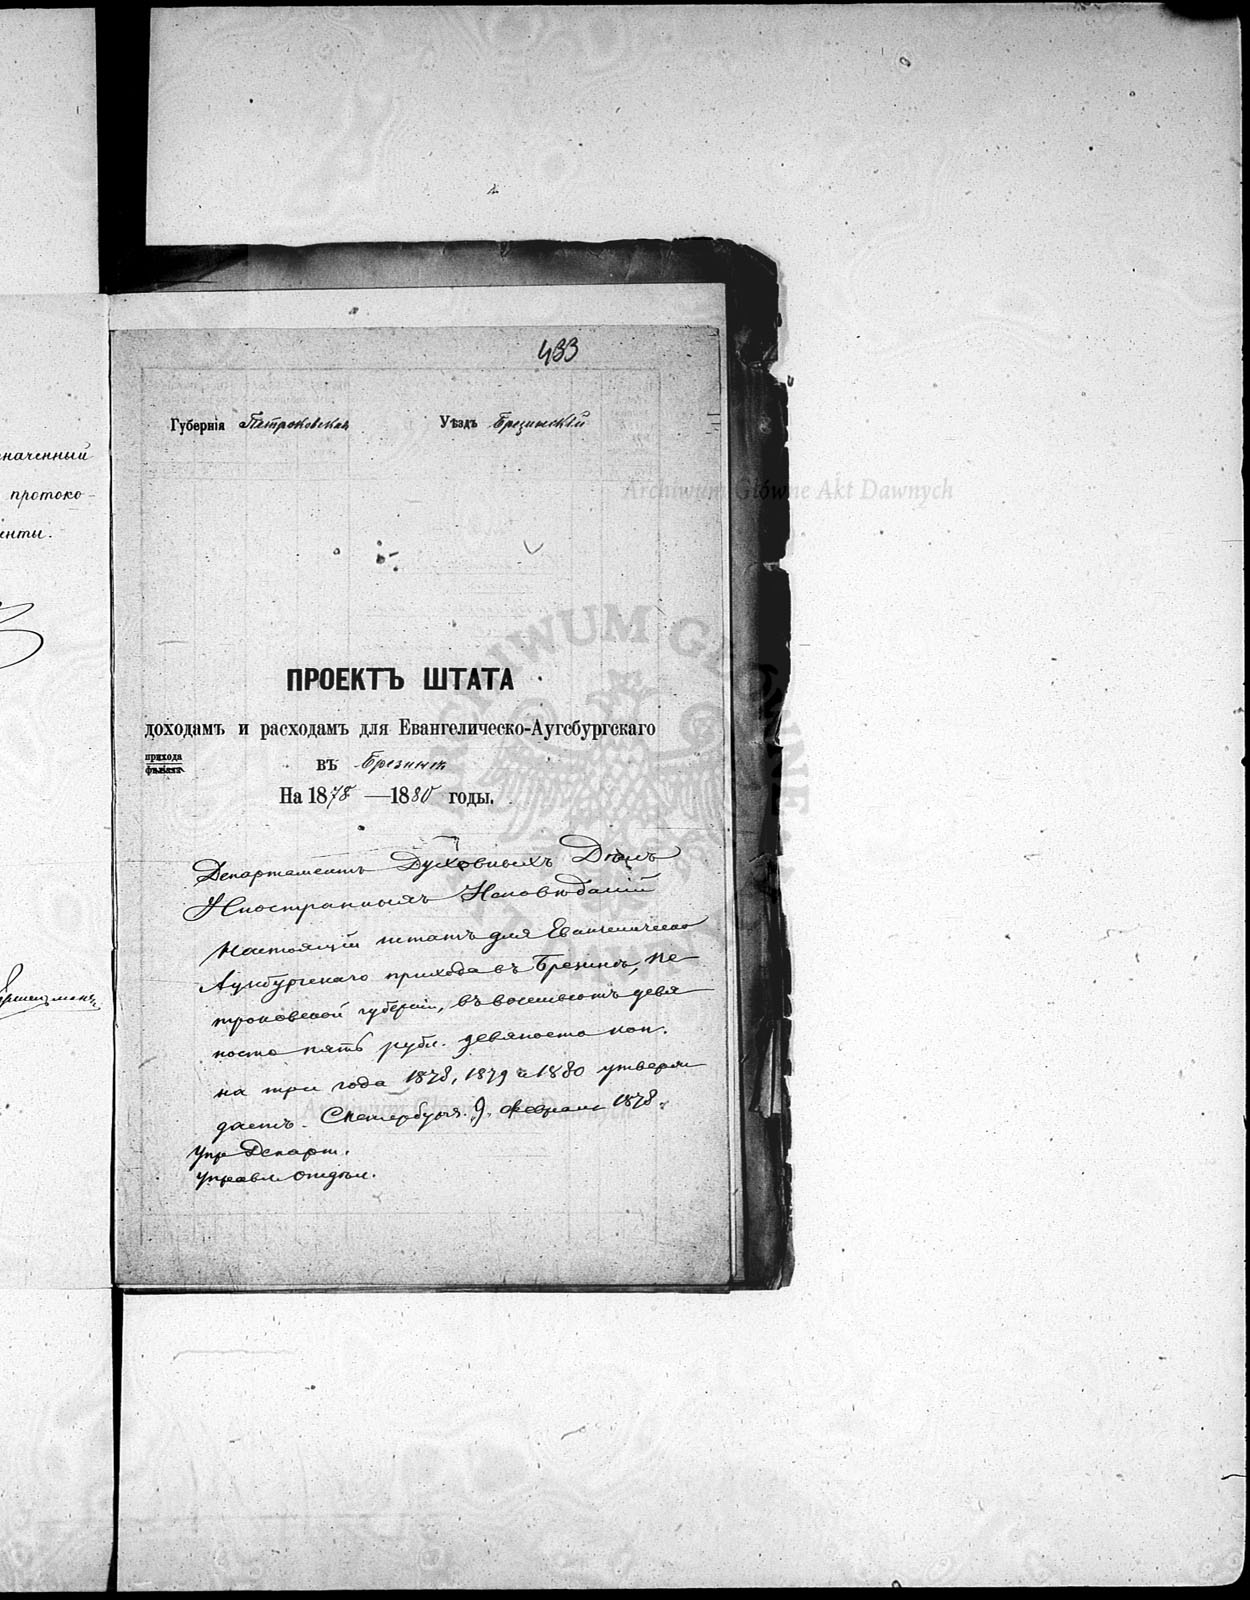 значенный
протоко-
енты.
433
Губернія Петроковская Уѣздъ Брезинскій
ПРОЕКТЪ ШТАТА
доходамъ и расходамъ для Евангелическо-Аугсбургскаго
прихода
филіала
въ Брезинѣ
На 1878—1880 годы.
Департаментъ Духовныхъ Дѣлъ
Иностранныхъ Исповѣданій
Настоящій штатъ для Евангелическо
Аугсбургскаго прихода въ Брезинѣ, Пе
троковской губерніи, въ восемьсотъ девя
носто пять рубл. девяносто коп.
на три года 1878, 1879 и 1880 утверж
даетъ. СПетербургъ. 9 Февраля 1878.
Упр Департ.
Управл Отдѣл.
Archiwum Główne Akt Dawnych
ARCHIWUM GŁÓWNE AKT DAWNYCH